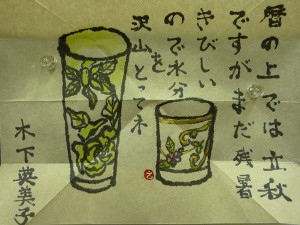 暦の上では立秋
ですがまだ残暑
きびしい
ので水分
を
沢山とってネ
木下英美子